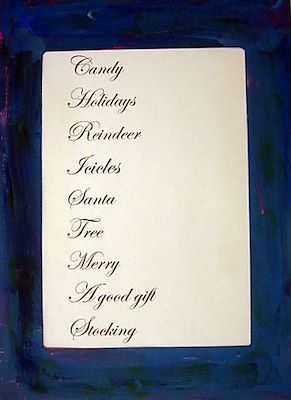 Candy
Holidays
Reindeer
Icicles
Santa
Tree
Merry
A good gift
Stocking